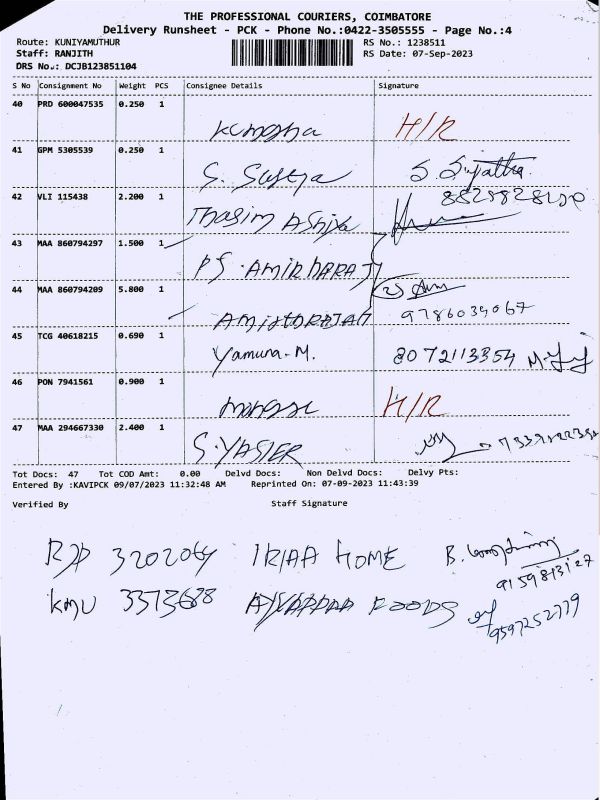 THE PROFESSIONAL COURIERS, COIMBATORE
Delivery Runsheet - PCK - Phone No.:0422-3505555 - Page No.:4
Route: KUNIYAMUTHUR RS No.: 1238511
Staff: RANJITH RS Date: 07-Sep-2023
DRS No.: DCJB123851104
S No Consignment No Weight PCS Consignee Details Signature
40 PRD 600047535 0.250 1
H/R
41 GPM 5305539 0.250 1
S. S. Sujatha
42 VLI 115438 2.200 1
Thasim Ashiya
43 MAA 860794297 1.500 1
PS. AMIRDHARAJ
44 MAA 860794209 5.800 1
9786034067
45 TCG 40618215 0.690 1
Yamuna-M. 8072113354
46 PON 7941561 0.900 1
H/R
47 MAA 294667330 2.400 1
S. YASIER
Tot Docs: 47 Tot COD Amt: 0.00 Delvd Docs: Non Delvd Docs: Delvy Pts:
Entered By :KAVIPCK 09/07/2023 11:32:48 AM Reprinted On: 07-09-2023 11:43:39
Verified By Staff Signature
3202064 HOME B.
9159813127
KMU 3373688 FOODS
9597252779